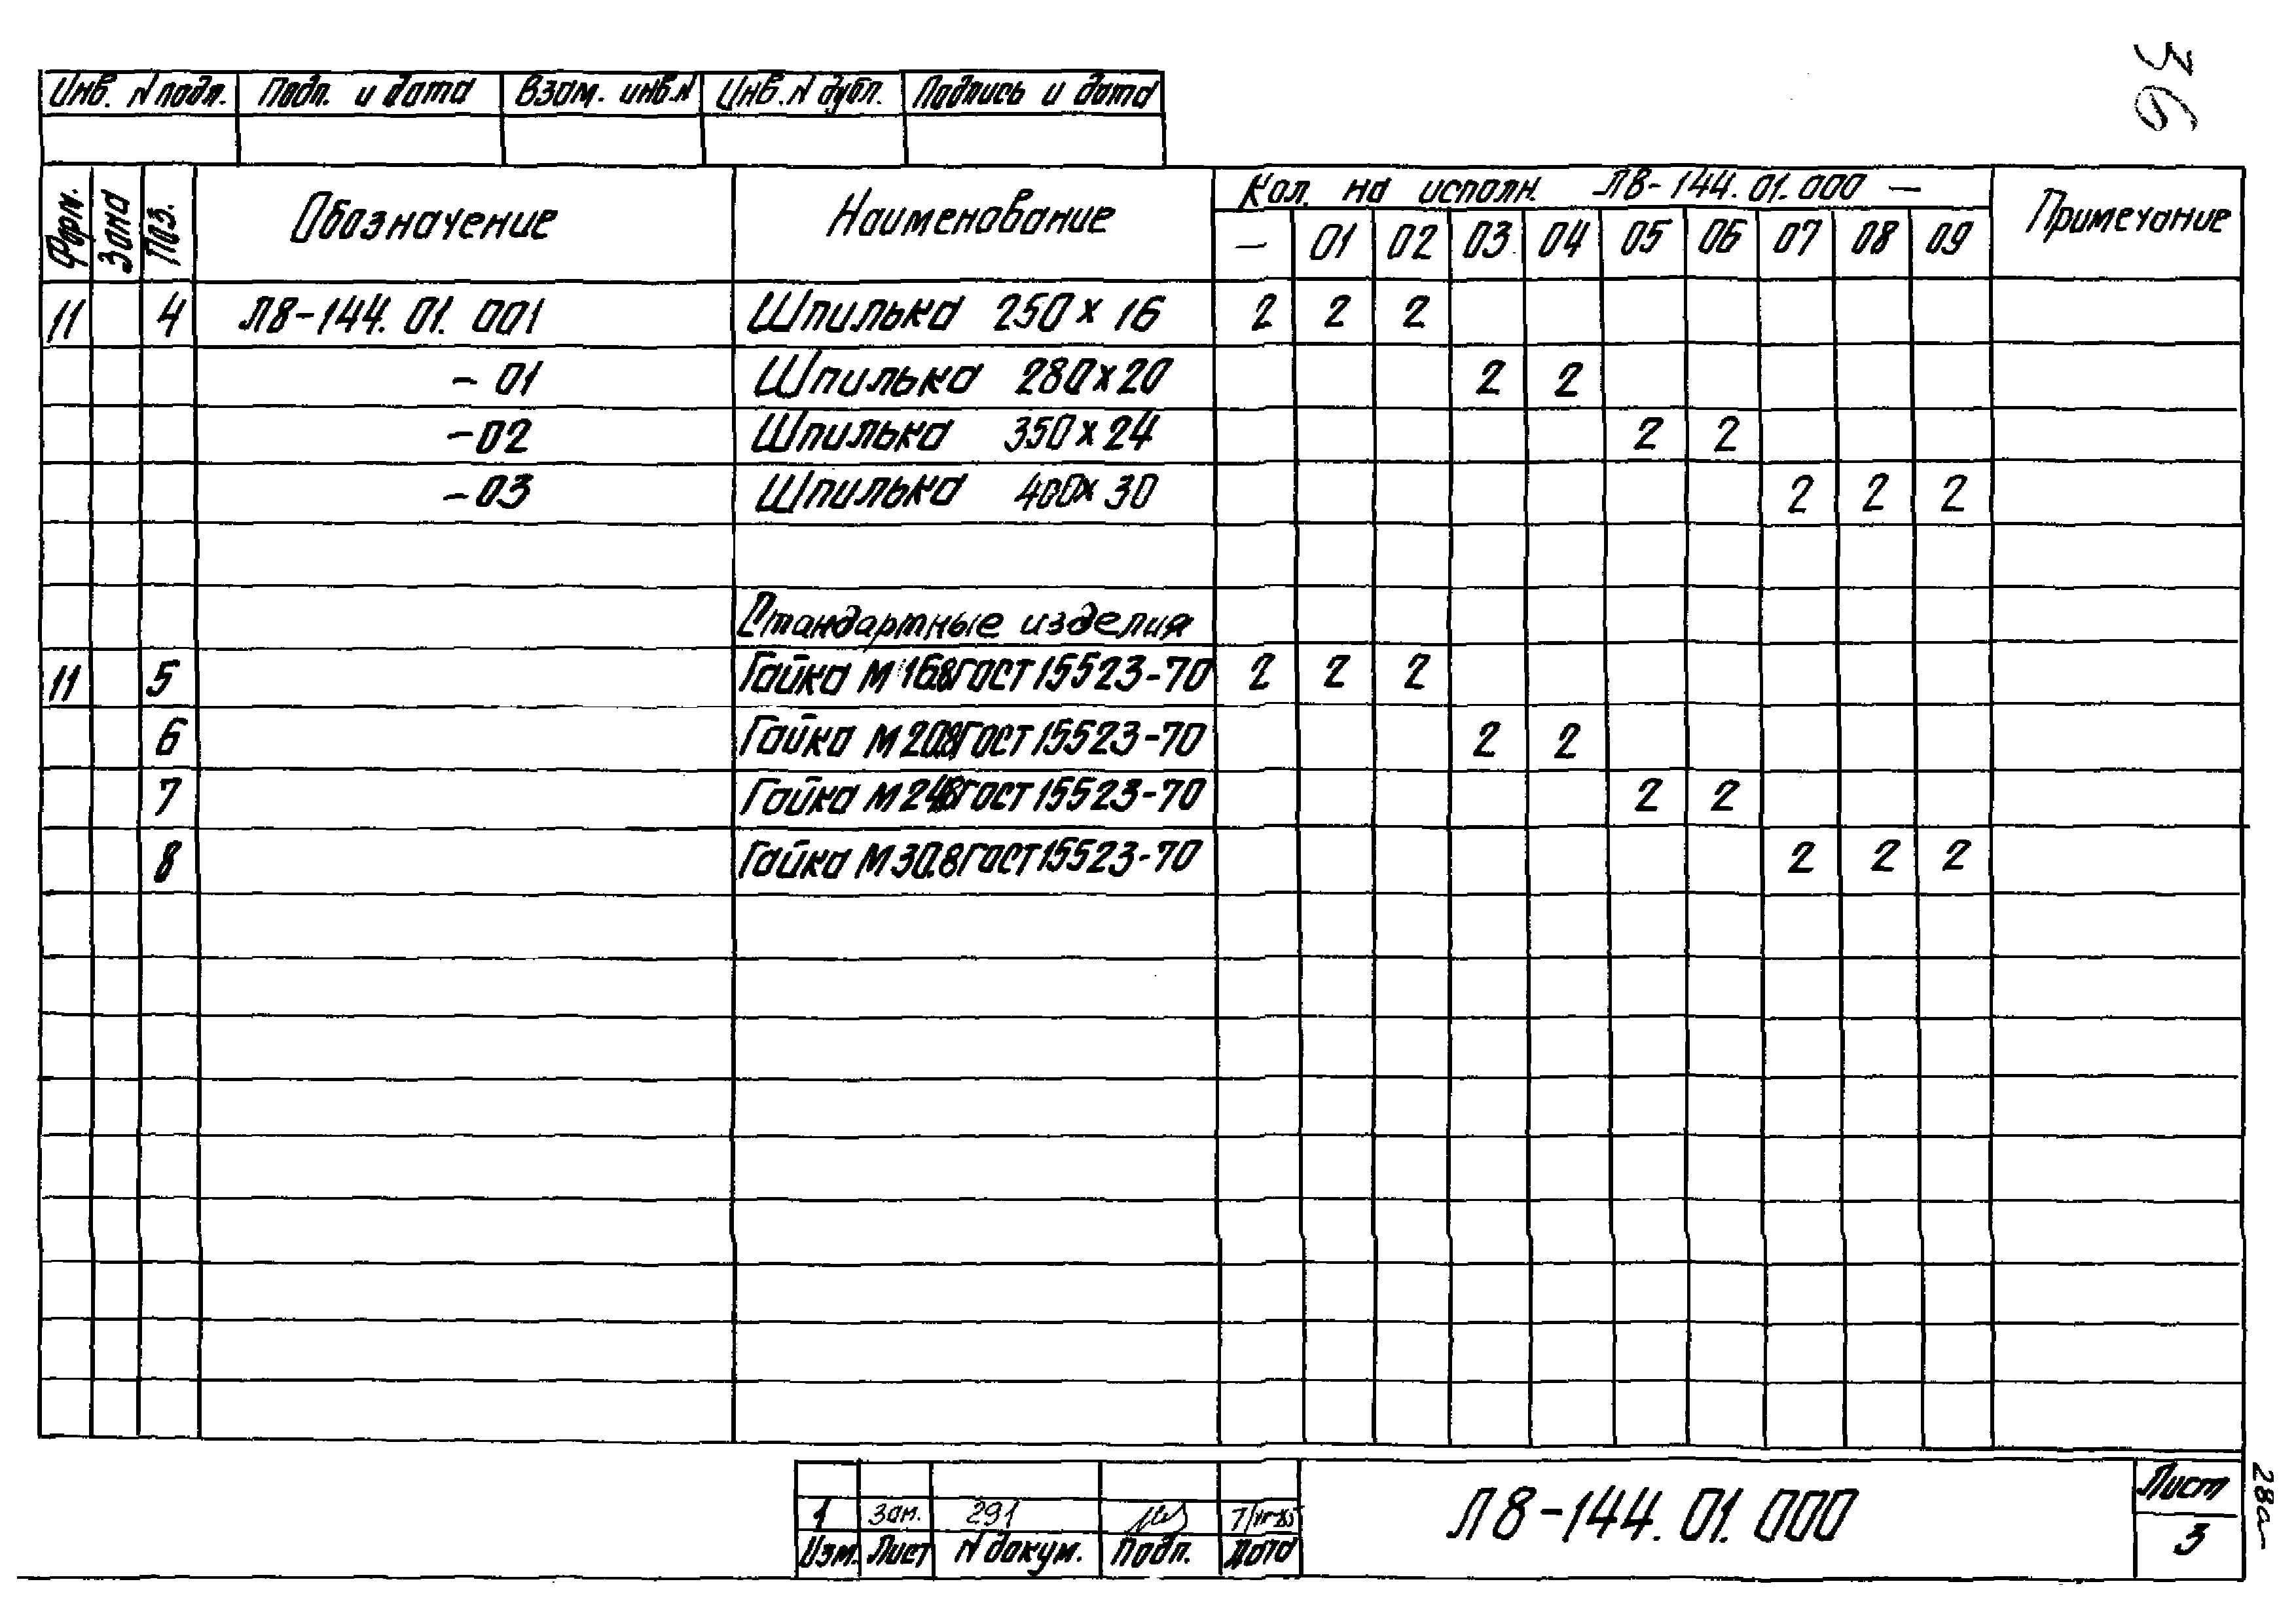 36
Инв. N подл. Подп. и дата Взам. инв. N Инв. N дубл. Подпись и дата
Форм. Зона Поз. Обозначение Наименование Кол. на исполн. Л8-144.01.000 — Примечание
— 01 02 03 04 05 06 07 08 09
11 4 Л8-144.01.001 Шпилька 250×16 2 2 2
-01 Шпилька 280×20 2 2
-02 Шпилька 350×24 2 2
-03 Шпилька 400×30 2 2 2
Стандартные изделия
11 5 Гайка М16.8 ГОСТ 15523-70 2 2 2
6 Гайка М20.8 ГОСТ 15523-70 2 2
7 Гайка М24.8 ГОСТ 15523-70 2 2
8 Гайка М30.8 ГОСТ 15523-70 2 2 2
1 Зам. 291
Изм. Лист N докум. Подп. Дата
Л8-144.01.000
Лист
3
28а